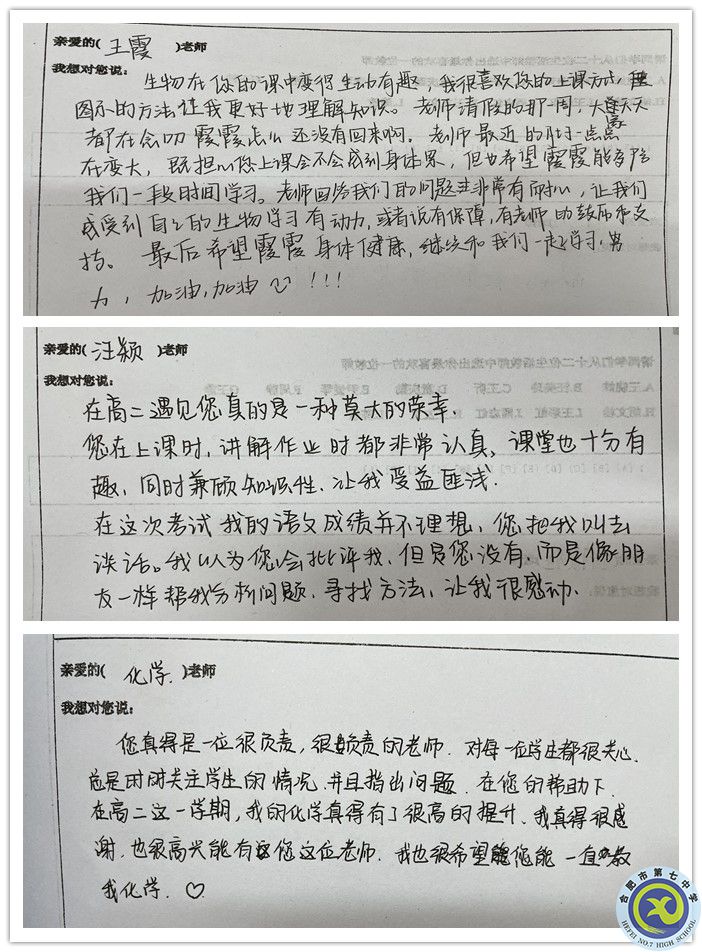 亲爱的( 王霞 )老师
我想对您说:
生物在你的课中变得生动有趣,我很喜欢您的上课方式,
图示的方法让我更好地理解知识。老师请假的那一周,大家天天
都在念叨霞霞怎么还没有回来啊。老师最近的肚子一点点
在变大,既担心您上课会不会感到身体累,但也希望霞霞能多陪
我们一段时间学习。老师回答我们的问题非常有耐心,让我们
感受到自己的生物学习有动力,或者说有保障,有老师的鼓励和支
持。最后希望霞霞身体健康,继续和我们一起学习,努
力,加油,加油!!!
亲爱的( 汪颖 )老师
我想对您说:
在高二遇见您真的是一种莫大的荣幸.
您在上课时,讲解作业时都非常认真。课堂也十分有
趣,同时兼顾知识性,让我受益匪浅.
在这次考试我的语文成绩并不理想,您把我叫去
谈话。我以为您会批评我,但是您没有,而是像朋
友一样帮我分析问题,寻找方法,让我很感动.
亲爱的( 化学. )老师
我想对您说:
您真得是一位很负责,很负责的老师.对每一位学生都很关心.
总是时时关注学生的情况,并且指出问题.在您的帮助下.
在高二这一学期,我的化学真得有了很高的提升.我真得很感
谢,也很高兴能有您这位老师.我也很希望您能一直教
我化学.♡
合肥市第七中学
HEFEI NO.7 HIGH SCHOOL